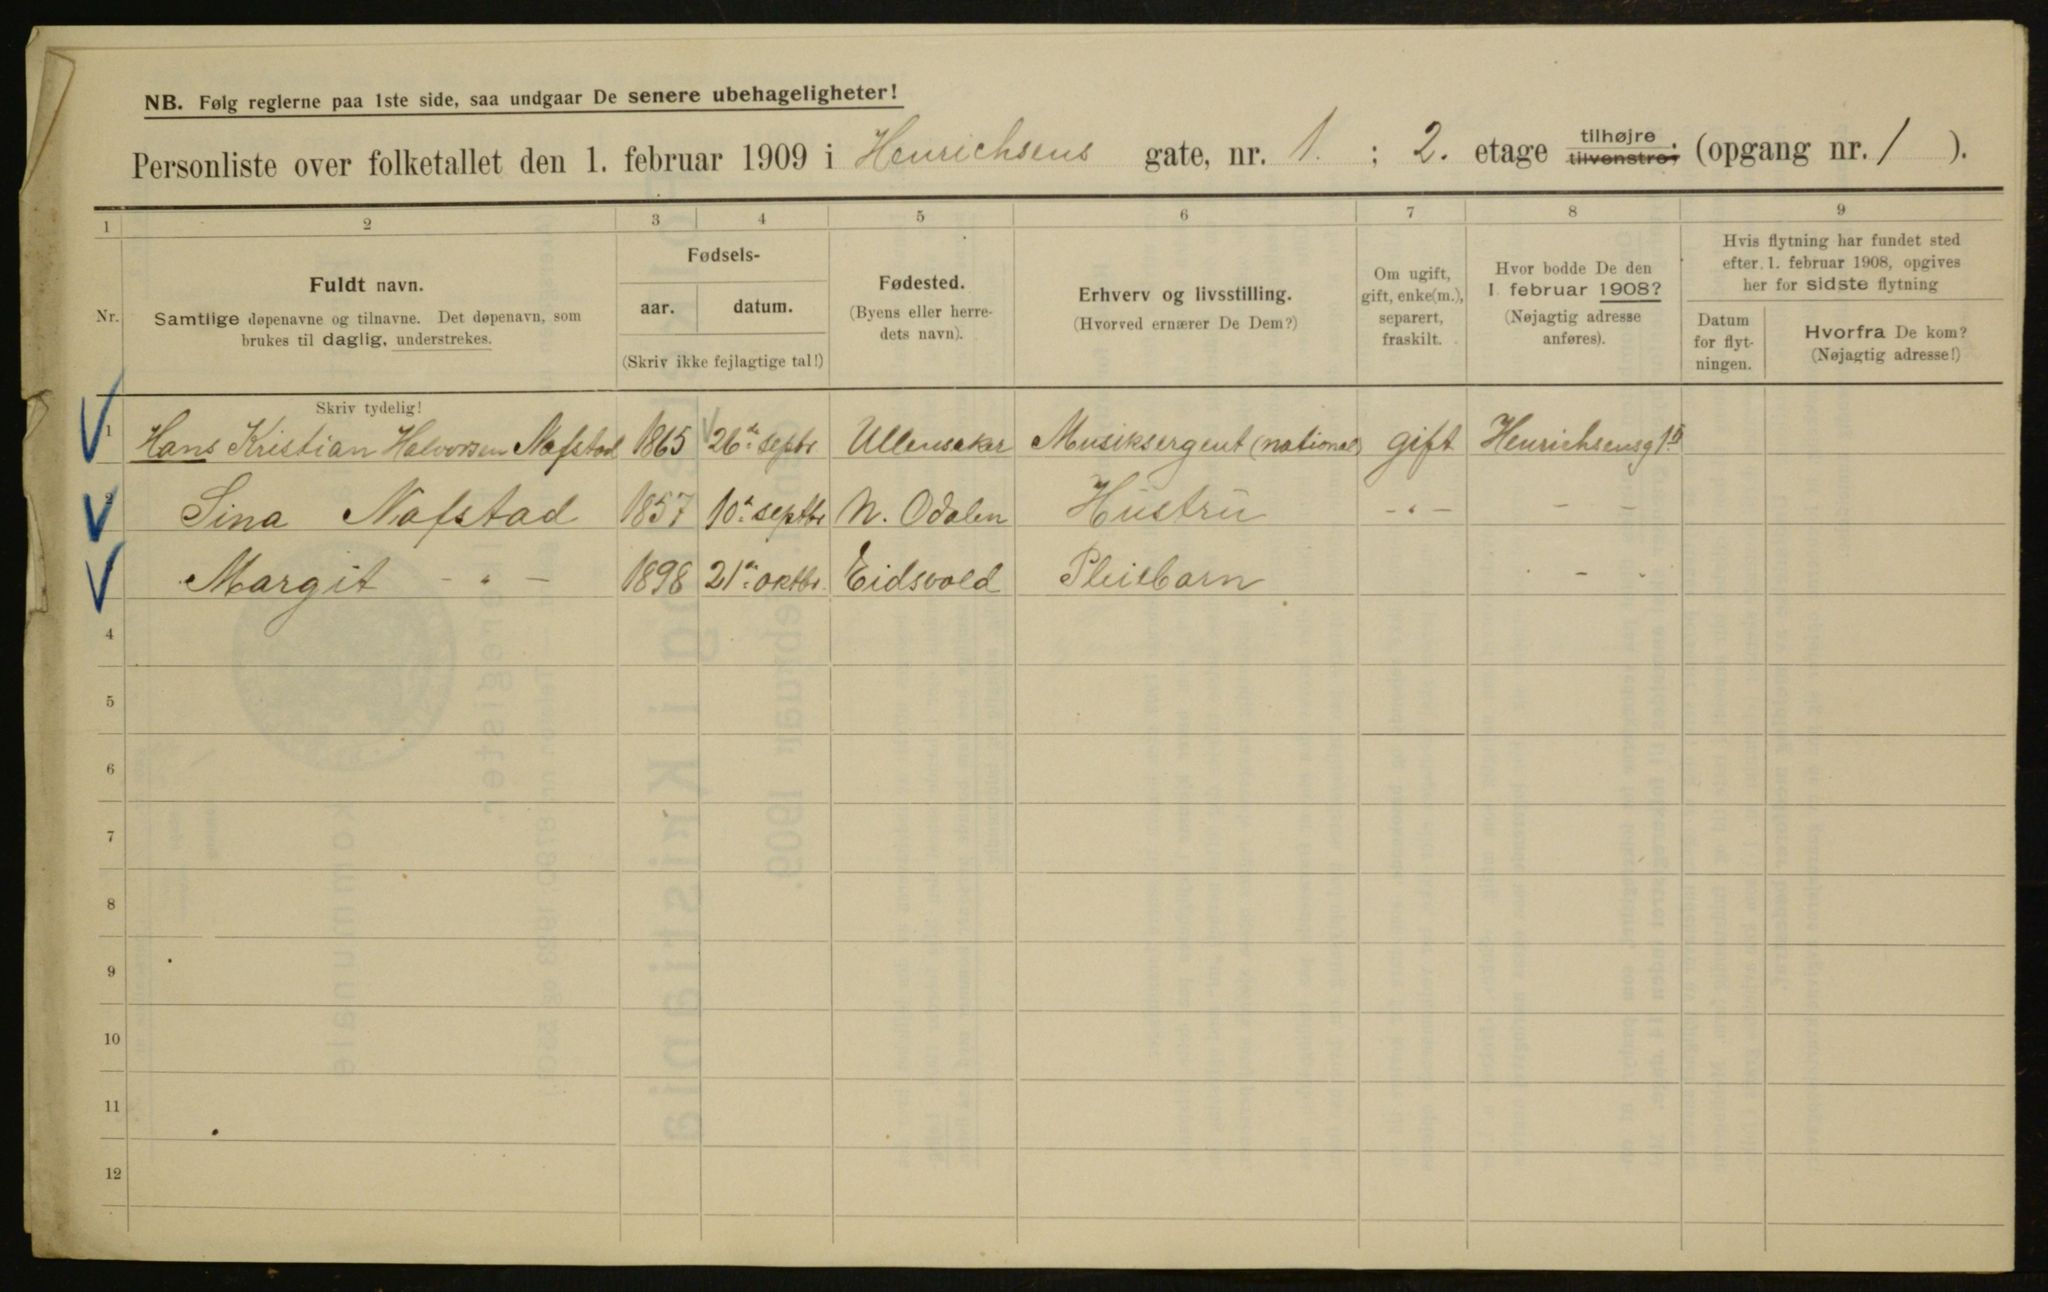 NB. Følg reglerne paa 1ste side, saa undgaar De senere ubehageligheter!
Personliste over folketallet den 1. februar 1909 i Henrichsens gate, nr. 1. ; 2. etage tilhøjre. tilvenstre, (opgang nr. 1 ).
1 2 3 4 5 6 7 8 9
Nr.
Fuldt navn.
Samtlige døpenavne og tilnavne. Det døpenavn, som
brukes til daglig, understrekes.
Fødsels-
aar. datum.
(Skriv ikke fejlagtige tal!)
Fødested.
(Byens eller herre-
dets navn).
Erhverv og livsstilling.
(Hvorved ernærer De Dem?)
Om ugift,
gift, enke(m.),
separert,
fraskilt.
Hvor bodde De den
1 februar 1908?
(Nøjagtig adresse
anføres).
Hvis flytning har fundet sted
efter 1. februar 1908, opgives
her for sidste flytning
Datum
for flyt-
ningen.
Hvorfra De kom?
(Nøjagtig adresse!)
Skriv tydelig!
1 Hans Kristian Halvorsen Nafstad 1865 26de septbr Ullensaker Musiksergent (national) gift Henrichsensg 1
2 Sina Nafstad 1857 10de septbr N. Odalen Hustru - " - - -
Margit - " - 1898 21de oktbr. Eidsvold Pleiebarn - -
4
5
6
7
8
9
10
11
12